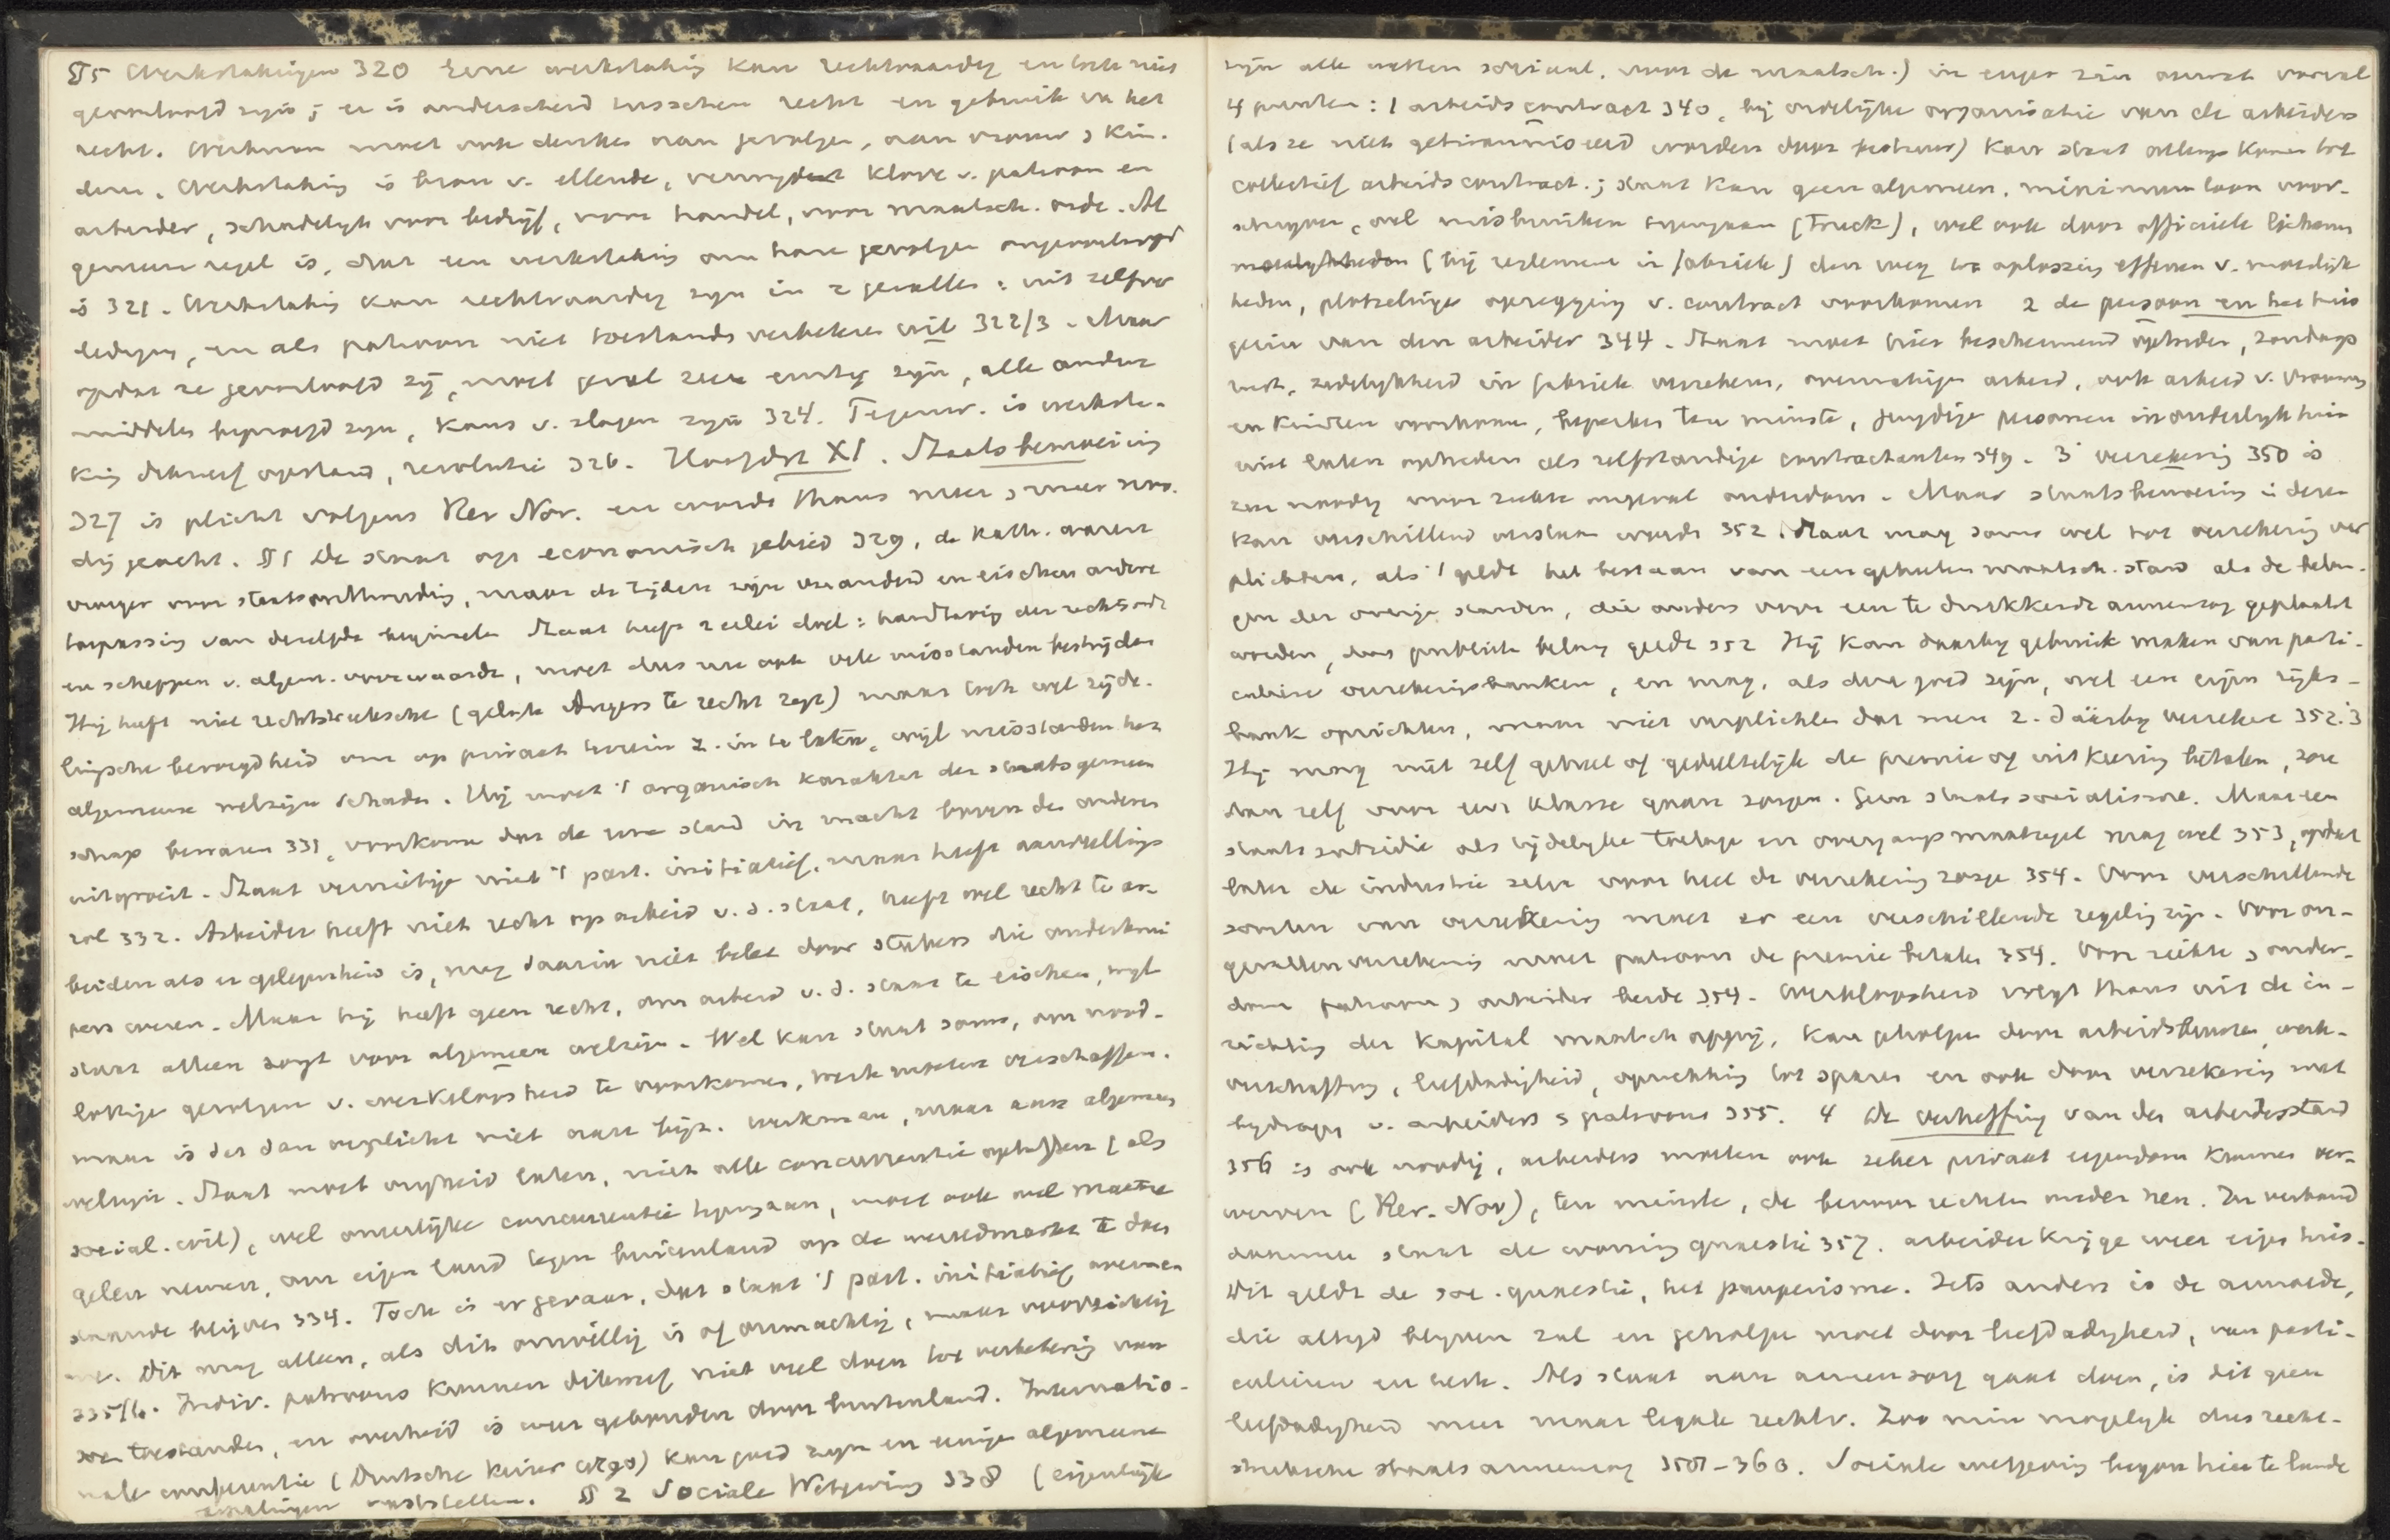 §5 Werkstakingen 320 Eene werkstaking kan rechtvaardig en toch niet
geoorloofd zijn; er is onderscheid tusschen recht en gebruik vh het
recht. Werkman moet ook denken aan gevolgen, aan vrouw & kin-
deren. Werkstaking is bron v. ellende, verwydert klove v. patroon en
arbeider, schadelyk voor bedrijf, voor handel, voor maatsch. orde. Al
gemeene regel is, dat een werkstaking om hare gevolgen ongeoorloofd
is 321. Werkstaking kan rechtvaardig zyn in 2 gevallen: uit zelfver
dediging, en als patroon niet toestands verbeteren wil 322/3. Maar
opdat ze geoorloofd zij, moet geval zeer ernstig zyn, alle andere
middelen beproefd zyn, kans v. slagen zyn 324. Tegenw. is werksta-
king dikwerf opstand, revolutie 326. Hoofdst XI. Staatsbemoeiing
327 is plicht volgens Rer Nov. en wordt thans meer & meer noo-
dig geacht. §1 De staat op economisch gebied 329, de Kath. waren
vroeger voor staatsonthouding, maar de tijden zijn veranderd en eischen andere
toepassing van dezelfde beginselen Staat heeft 2 erlei doel: handhaving der rechtsorde
en scheppen v. algem. voorwaarde, moet dus ook vele misstanden bestrijden
Hij heeft niet rechtstreeksche (gelijk Angers te recht zegt) maar toch wel zijde-
lingsche bevoegdheid om op privaat terrein z. in te laten, wijl misstanden het
algemeene welzijn schaden. Hij moet 't organisch karakter der staatsgemeen
schap bewaren 331, voorkome dat de eene stand in macht boven de anderen
uitgroeit. Staat vernietige niet 't part. initiatief, maar heeft aanvullings
rol 332. Arbeider heeft niet recht op arbeid v. d. staat, heeft wel recht te ar-
beiden als er gelegenheid is, mag daarin niet belet door stakers die onderkrui
pers weren. Maar hij heeft geen recht, om arbeid v. d. staat te eischen, wyl
staat alleen zorgt voor algemeen welzijn. Wel kan staat soms, om nood-
lottige gevolgen v. werkeloosheid te voorkomen, werk moeten verschaffen.
maar is dat dan verplicht niet aan bijz. werkman, maar aan algemeen
welzijn. Staat moet vrijheid laten, niet alle concurrentie opheffen (als
social. wil), wel oneerlijke concurrentie tegengaan, moet ook wel maatre
gelen nemen, om eigen land tegen buitenland op de wereldmarkt te doen
staande blijven 334. Toch is er gevaar, dat staat 't part. initiatief overnee
me. Dit mag alleen, als dit onwillig is of onmachtig, maar voorzichtig
335/6. Indiv. patroons kunnen dikwerf niet veel doen tot verbetering van
soc toestanden, en overheid is weer gebonden door buitenland. Internatio-
nale conferentie (Duitsche keizer 1890) kan goed zyn en eenige algemeene
bepalingen vaststellen. §2 Sociale Wetgeving 338 (eigenlijk
zijn alle wetten sociaal, voor de maatsch.) in enger zin omvat vooral
4 punten: 1 arbeidscontract 340, bij ordelijke organisatie van de arbeiders
(als ze niet getiranniseerd worden door bestuur) kan staat allengs komen tot
collectief arbeidscontract.; staat kan geen algemeen. minimum loon voor-
schryven, wel misbruiken tegengaan (Truck), wel ook door officieele lichamen
(bij reglement in fabriek) den weg tot oplossing effenen v. moeilijk
heden, plotselinge opzegging v. contract voorkomen 2 de persoon en het huis
gezin van den arbeider 344. Staat moet hier beschermend optreden, zondags
rust, zedelykheid in fabriek verzekeren, overmatigen arbeid, ook arbeid v. vrouwen
en kinderen voorkomen, beperken ten minste, jeugdige personen in ouderlyk huis
niet laten optreden als zelfstandige contractanten 349. 3 verzekering 350 is
zeer noodig voor ziekte ongeval ouderdom. Maar staatsbemoeiing in deze
kan verschillend verstaan worden 352. Staat mag soms wel tot verzekering ver
plichten, als 't geldt het bestaan van een geheelen maatsch. stand als de belan-
gen der overige standen, die anders voor een te drukkende armenzorg geplaatst
worden, dus publiek belang geldt 352 Hij kan daarby gebruik maken van parti-
culiere verzekeringsbanken, en mag, als dit goed zijn, wel een eigen rijks-
bank oprichten, maar niet verplichten dat men z. daarby verzekere 352.3
Hij mag niet zelf geheel of gedeeltelijk de premie of uitkeering betalen, zou
dan zelf voor een klasse gaan zorgen. Geen staats socialisme. Maar een
staats subsidie als tijdelyke toelage en overgangs maatregel mag wel 353, opdat
later de industrie zelve voor heel de verzekering zorge 354. Voor verschillende
soorten van verzekering moet er een verschillende regeling zijn. Voor on-
gevallenverzekering moet patroon de premie betalen 354. Voor ziekte & ouder-
dom patroon & arbeider beide 354. Werkloosheid volgt thans uit de in-
richting der kapital. maatsch appij, kan geholpen door arbeidsbeurzen, werk-
verschaffing, liefdadigheid, opwekking tot sparen en ook door verzekering met
bydragen v. arbeiders & patroons 355. 4 de verheffing van den arbeidersstand
356 is ook noodig, arbeiders moeten ook zeker privaat eigendom kunnen ver-
werven (Rer. Nov),
daarmee staat de woning quaestie 357. arbeider krijge weer eigen huis.
Dit geldt de soc. quaestie, het pauperisme. Iets anders is de armoede,
die altyd blyven zal en geholpen moet door liefdadigheid, van parti-
culieren en kerk. Als staat aan armenzorg gaat doen, is dit geen
liefdadigheid meer maar legale rechtv. Zoo min mogelyk dus recht-
streeksche staats armenzorg 358-360. Sociale wetgeving begon hier te lande